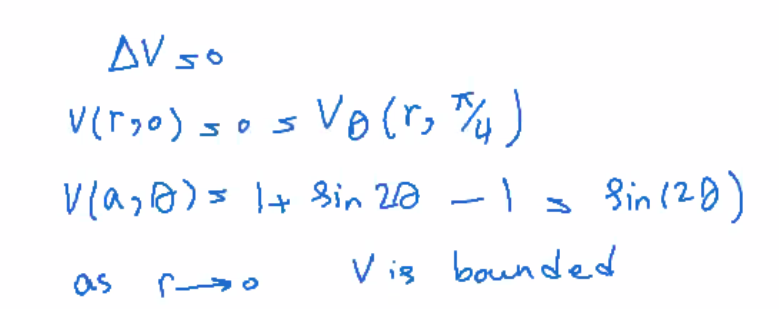 ΔV = 0
V(r,0) = 0 = Vθ(r, π/4)
V(a,θ) = 1 + sin 2θ - 1 = sin(2θ)
as r → 0 V is bounded